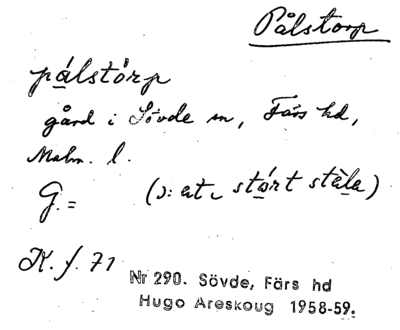 Pålstorp
pålstórp
gård i Sövde sn, Färs hd,
Malm. l.
G. = (ɔ: at stórt ställe)
K. f. 71
Nr 290. Sövde, Färs hd
Hugo Areskoug 1958-59.